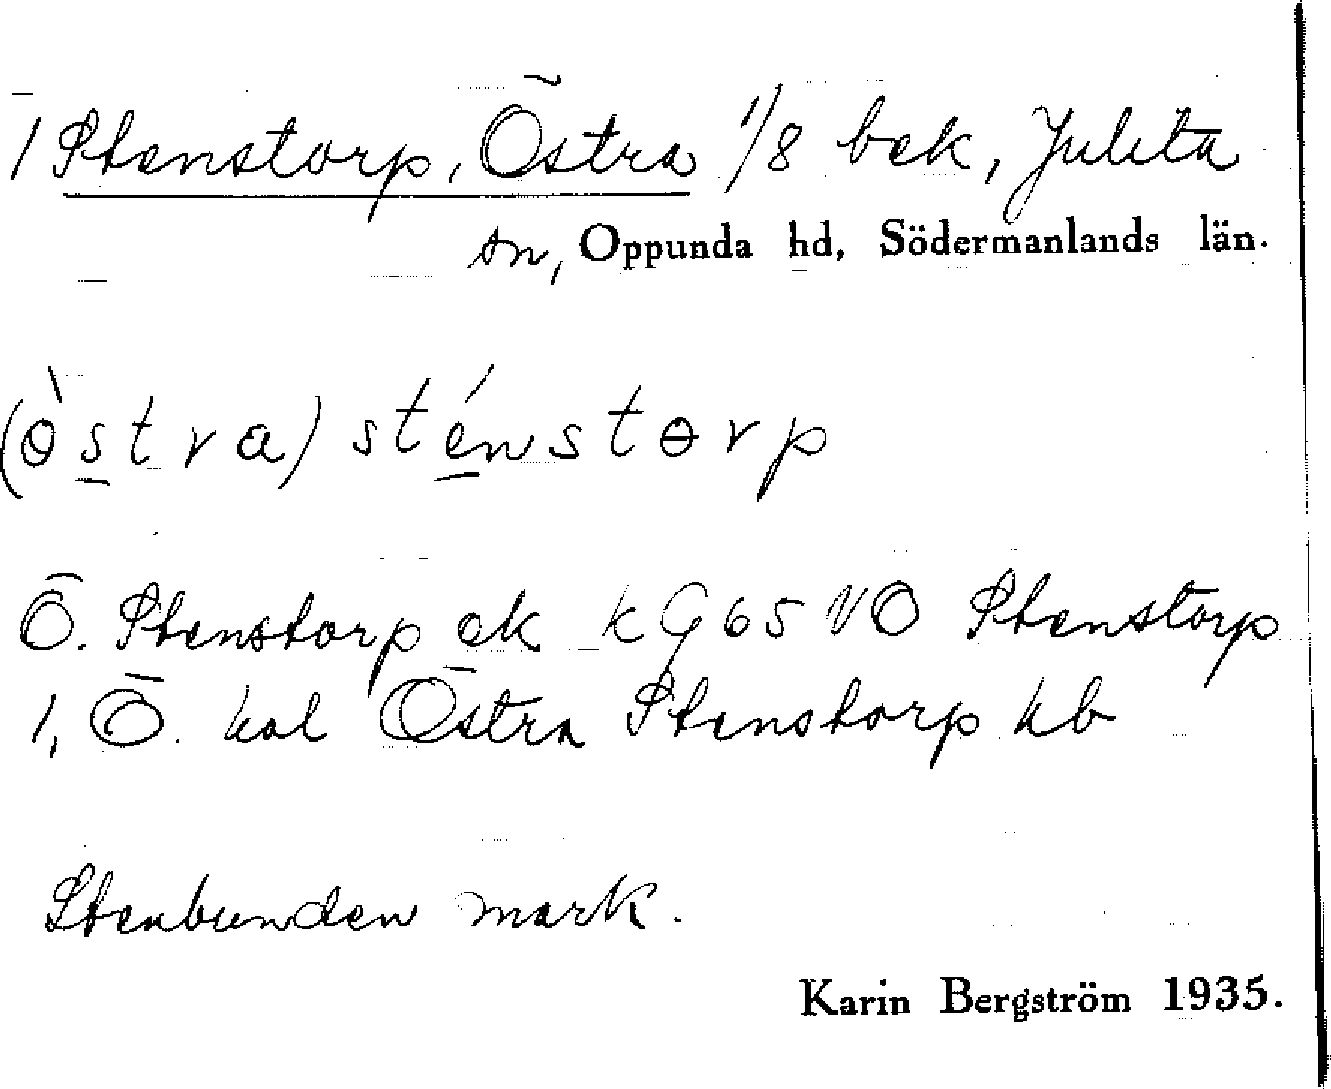 1 Stenstorp, Östra 1/8 bek, Julita
sn, Oppunda hd, Södermanlands län.
(ɵ̀stra) sténstɵrp
Ö. Stenstorp ek k G65 VO Stenstorp
1, Ö. kal Östra Stenstorp kb
Stenbunden mark.
Karin Bergström 1935.